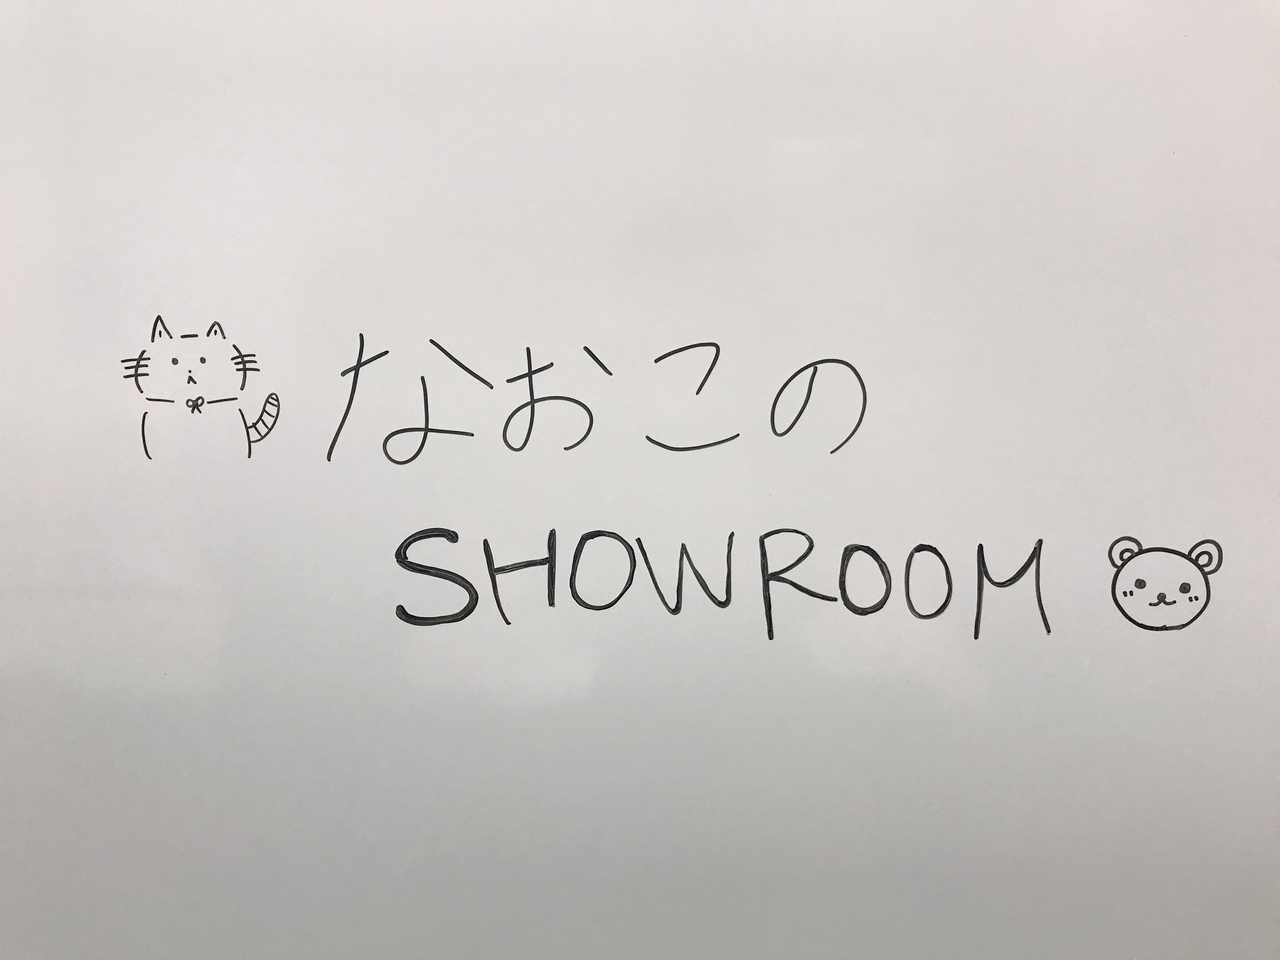 なおこの
SHOWROOM